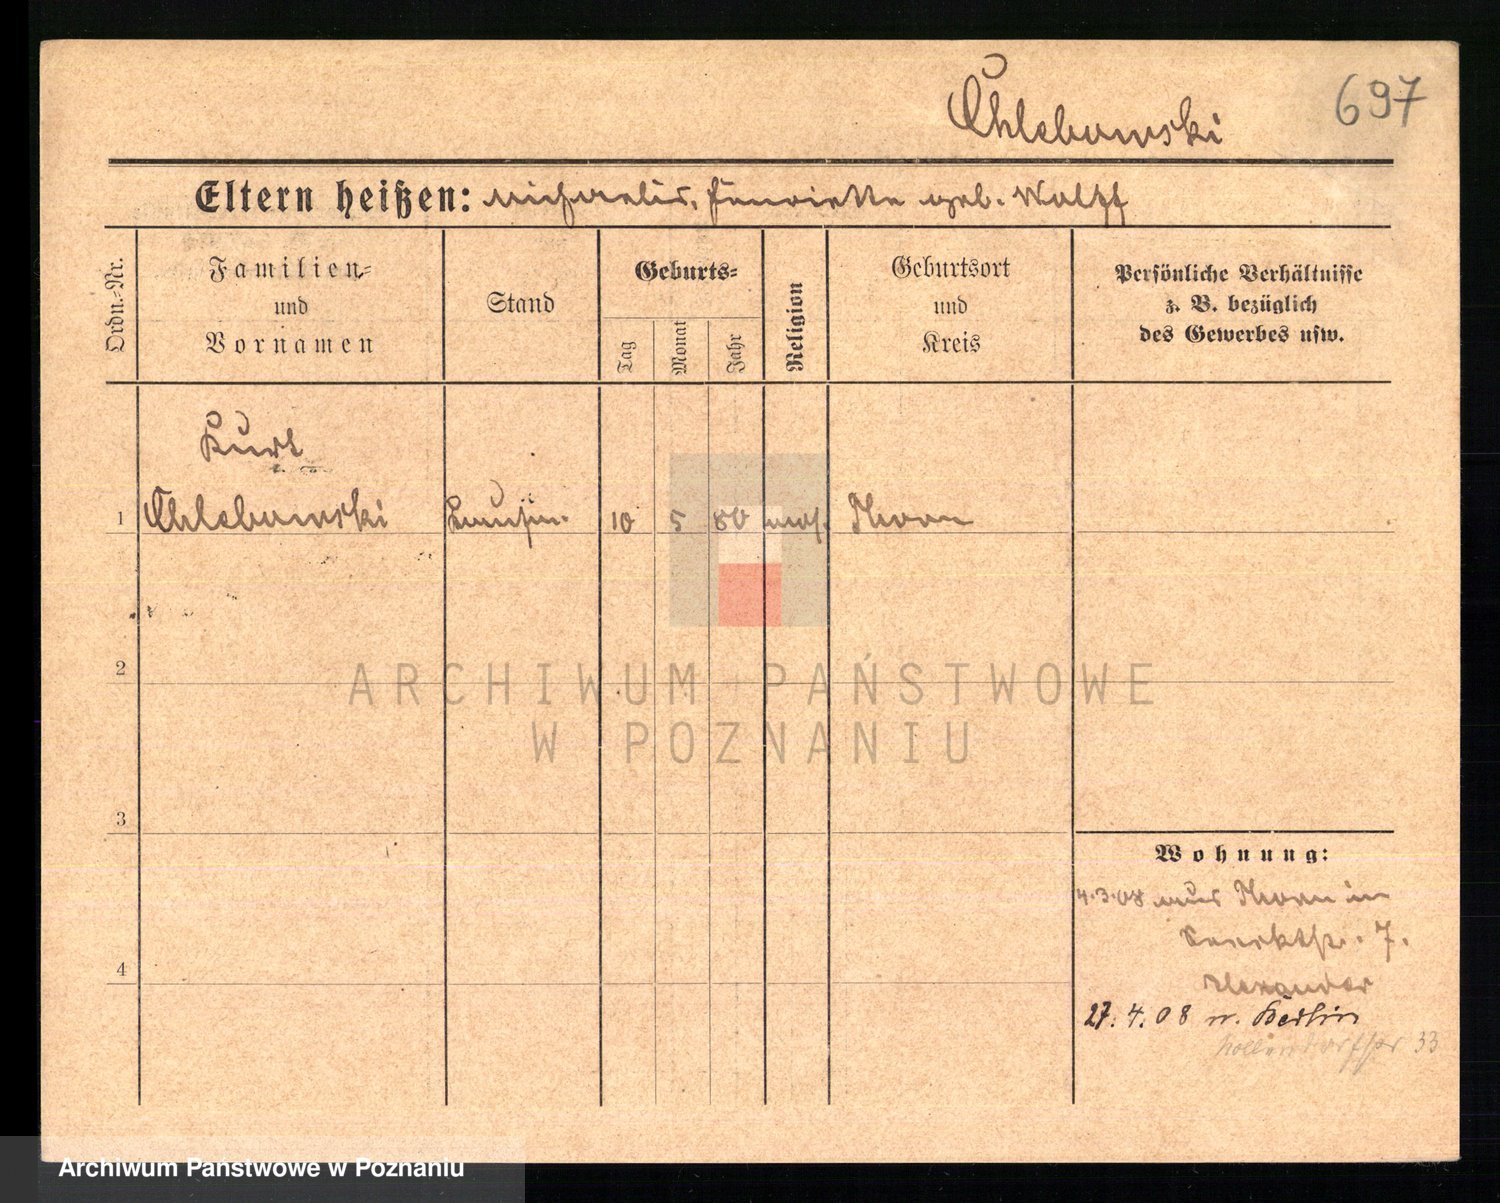 697
Chlebowski
Eltern heißen: Michaelis, Henriette geb. Wolff
Ordn.-Nr.
Familien-
und
Vornamen
Stand
Geburts-
Tag
Monat
Jahr
Religion
Geburtsort
und
Kreis
Persönliche Verhältnisse
z. B. bezüglich
des Gewerbes usw.
Kurt
1 Chlebowski Kaufm. 10 5 80 mos. Thorn
2
ARCHIWUM PAŃSTWOWE
W POZNANIU
3
Wohnung:
4.3.08 aus Thorn in
7.
4
Alexander
27.4.08 n. Berlin
33
Archiwum Państwowe w Poznaniu